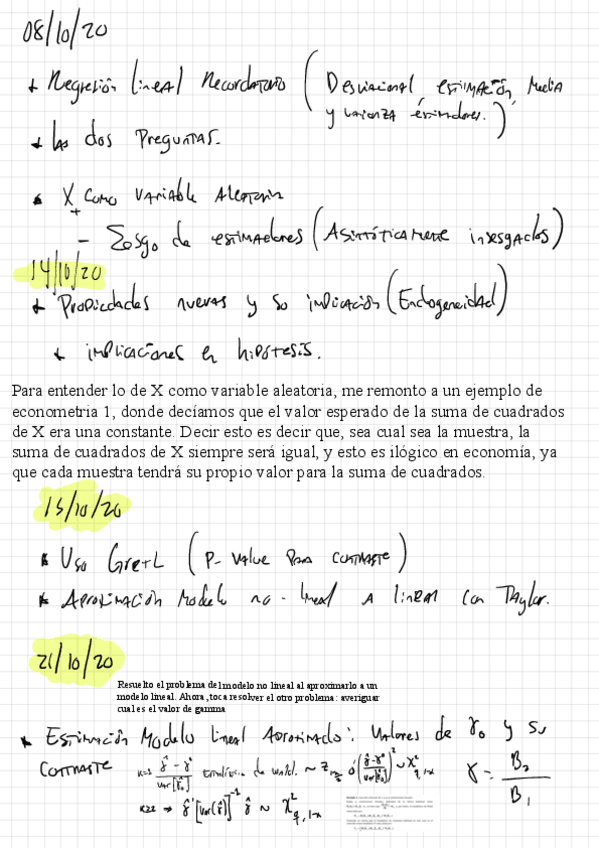 08/10/20
+ Regresión lineal Recordatorio (Desviacional, estimación, Media
y varianza estimadores.)
+ Las dos Preguntas.
X como variable Aleatoria
+
- Sesgo de estimadores (Asintóticamente insesgados)
14/10/20
+ Propiedades nuevas y su implicación (Endogeneidad)
+ implicaciones en hipótesis.
Para entender lo de X como variable aleatoria, me remonto a un ejemplo de
econometria 1, donde decíamos que el valor esperado de la suma de cuadrados
de X era una constante. Decir esto es decir que, sea cual sea la muestra, la
suma de cuadrados de X siempre será igual, y esto es ilógico en economía, ya
que cada muestra tendrá su propio valor para la suma de cuadrados.
15/10/20
* Uso Gretl (P-value para contraste)
* Aproximación Modelo no-lineal a lineal con Taylor.
21/10/20
Resuelto el problema del modelo no lineal al aproximarlo a un
modelo lineal. Ahora, toca resolver el otro problema: averiguar
cual es el valor de gamma
* Estimación Modelo Lineal Aproximado: Valores de γ₀ y su
Contraste
γ = B₂ / B₁